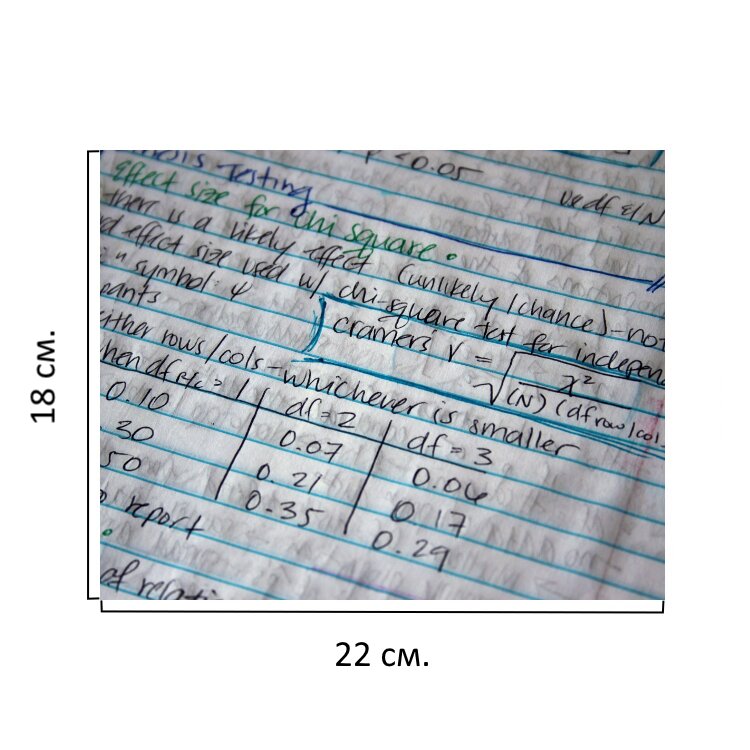 Testing
<0.05
Effect size for chi square.
df & N
there is a likely effect (unlikely/chance)-not
effect size used w/ chi-square test for indepen
symbol: φ
cramers V = √ χ²
(N) (df row/col
either rows/cols-whichever is smaller
when df R/C = 1
df=2
df=3
0.10
0.07
0.06
30
0.21
0.17
50
0.35
0.29
report
of relati
18 см.
22 см.